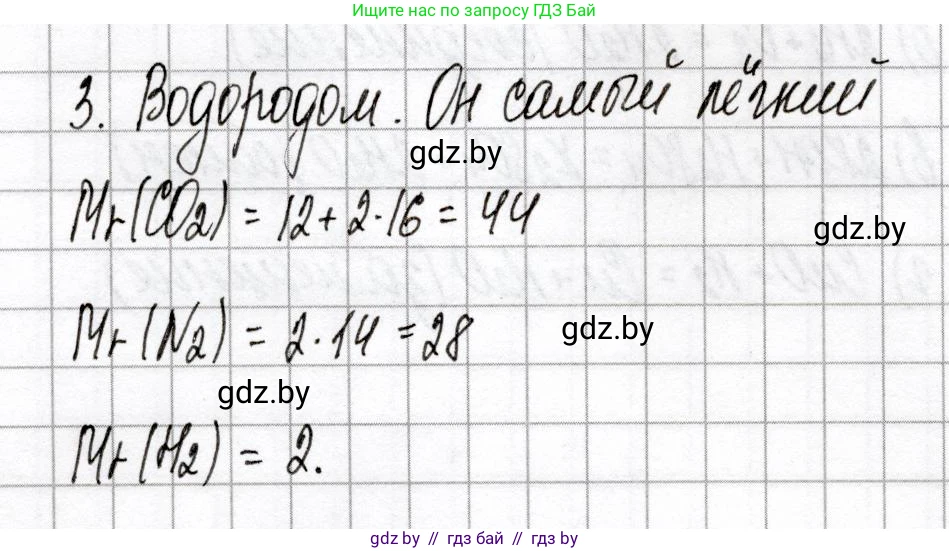 Ищите нас по запросу ГДЗ Бай
3. Водородом. Он самый лёгкий
gdz.by
Mr(CO2) = 12 + 2·16 = 44
gdz.by
Mr(N2) = 2·14 = 28
gdz.by
gdz.by
Mr(H2) = 2.
gdz.by // гдз бай // гдз by